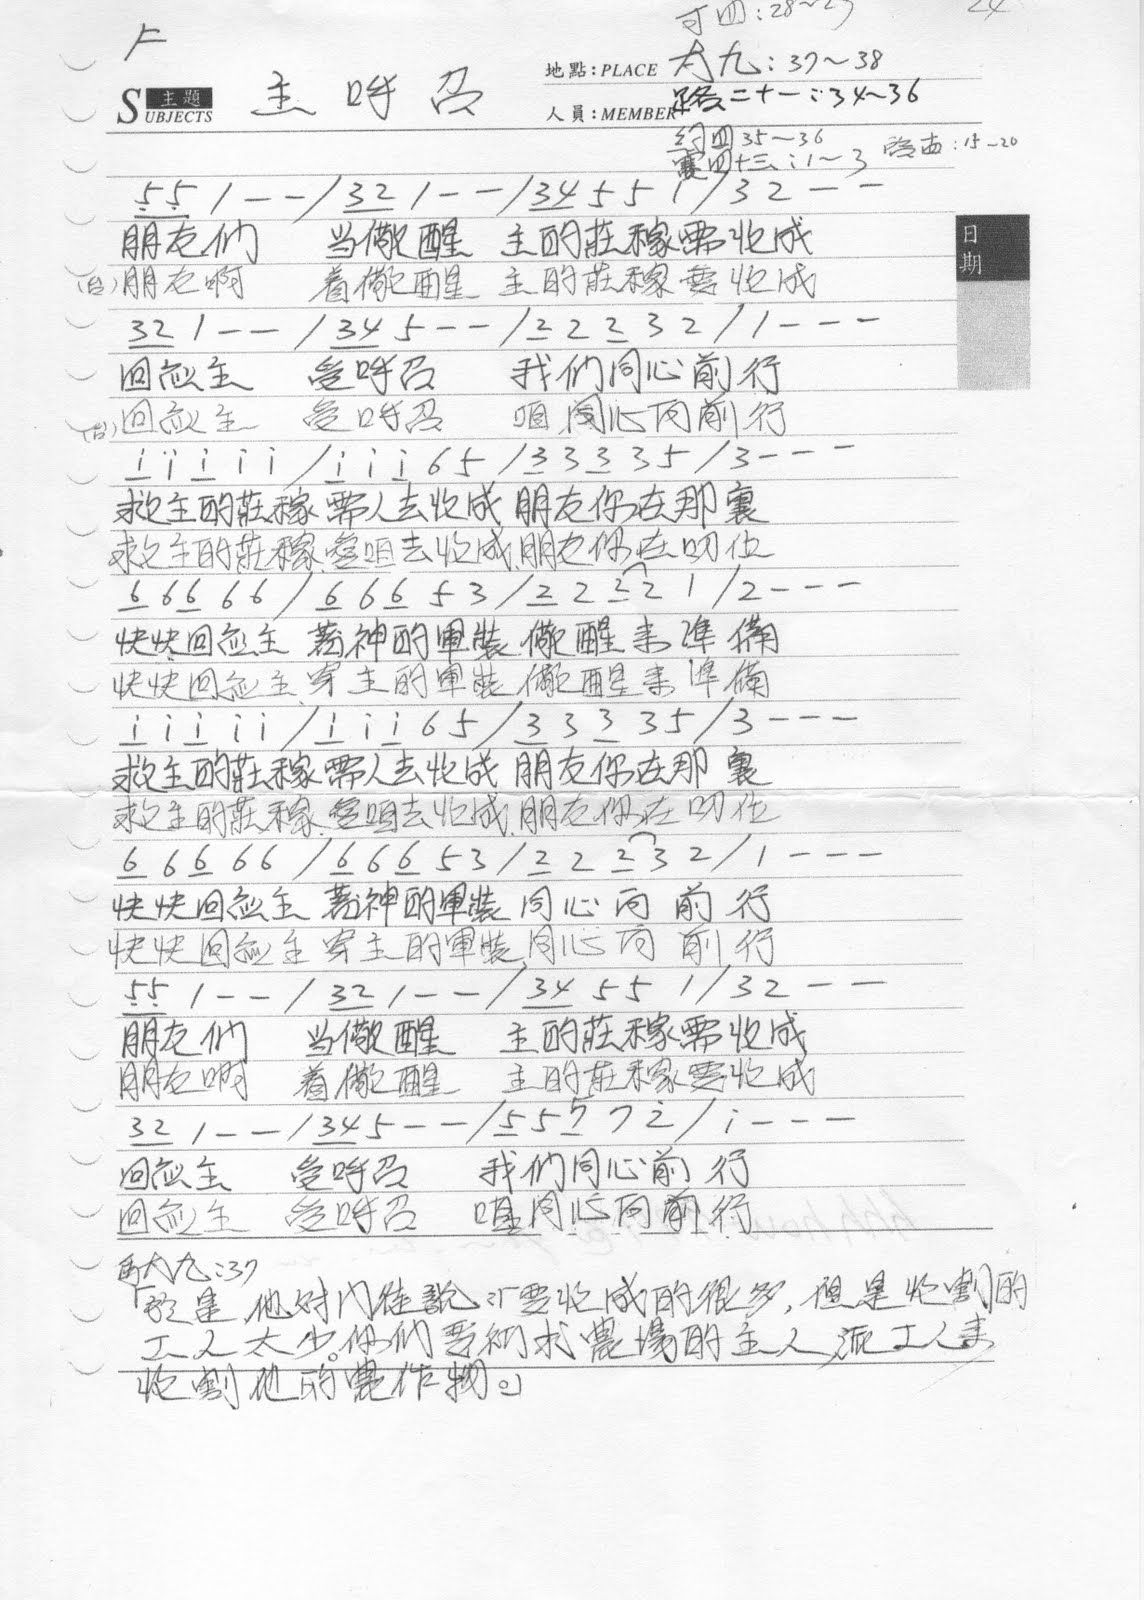 24
可四：28～29
F
地點：PLACE 太九：37～38
SUBJECTS 主題 主呼召
人員：MEMBER 路二十一：34～36
約四35～36
賽四十三：1～3
啓：15～20
日期
5 5 1 - - / 3 2 1 - - / 3 4 5 5 1 / 3 2 - -
朋友們 当儆醒 主的莊稼需收成
(台) 朋友啊 着儆醒 主的莊稼要收成
3 2 1 - - / 3 4 5 - - / 2 2 2 3 2 / 1 - - -
回应主 受呼召 我们同心前行
(台) 回应主 受呼召 咱同心向前行
i i i i i / i i i 6 5 / 3 3 3 3 5 / 3 - - -
救主的莊稼需人去收成 朋友你在那裏
救主的莊稼愛咱去收成 朋友你在叨位
6 6 6 6 6 / 6 6 6 5 3 / 2 2 2 2 1 / 2 - - -
快快回应主 著神的軍裝 儆醒来準備
快快回应主 穿主的軍裝 儆醒来準備
i i i i i / i i i 6 5 / 3 3 3 3 5 / 3 - - -
救主的莊稼需人去收成 朋友你在那裏
救主的莊稼愛咱去收成 朋友你在叨位
6 6 6 6 6 / 6 6 6 5 3 / 2 2 2 3 2 / 1 - - -
快快回应主 著神的軍裝 同心向前行
快快回应主 穿主的軍裝 同心向前行
5 5 1 - - / 3 2 1 - - / 3 4 5 5 1 / 3 2 - -
朋友們 当儆醒 主的莊稼需收成
朋友啊 着儆醒 主的莊稼要收成
3 2 1 - - / 3 4 5 - - / 5 5 5 7 2 / i - - -
回应主 受呼召 我们同心前行
回应主 受呼召 咱同心向前行
馬太九：37
「於是他对门徒說：「要收成的很多，但是收割的
工人太少。你們要祈求農場的主人派工人来
收割他的農作物。」